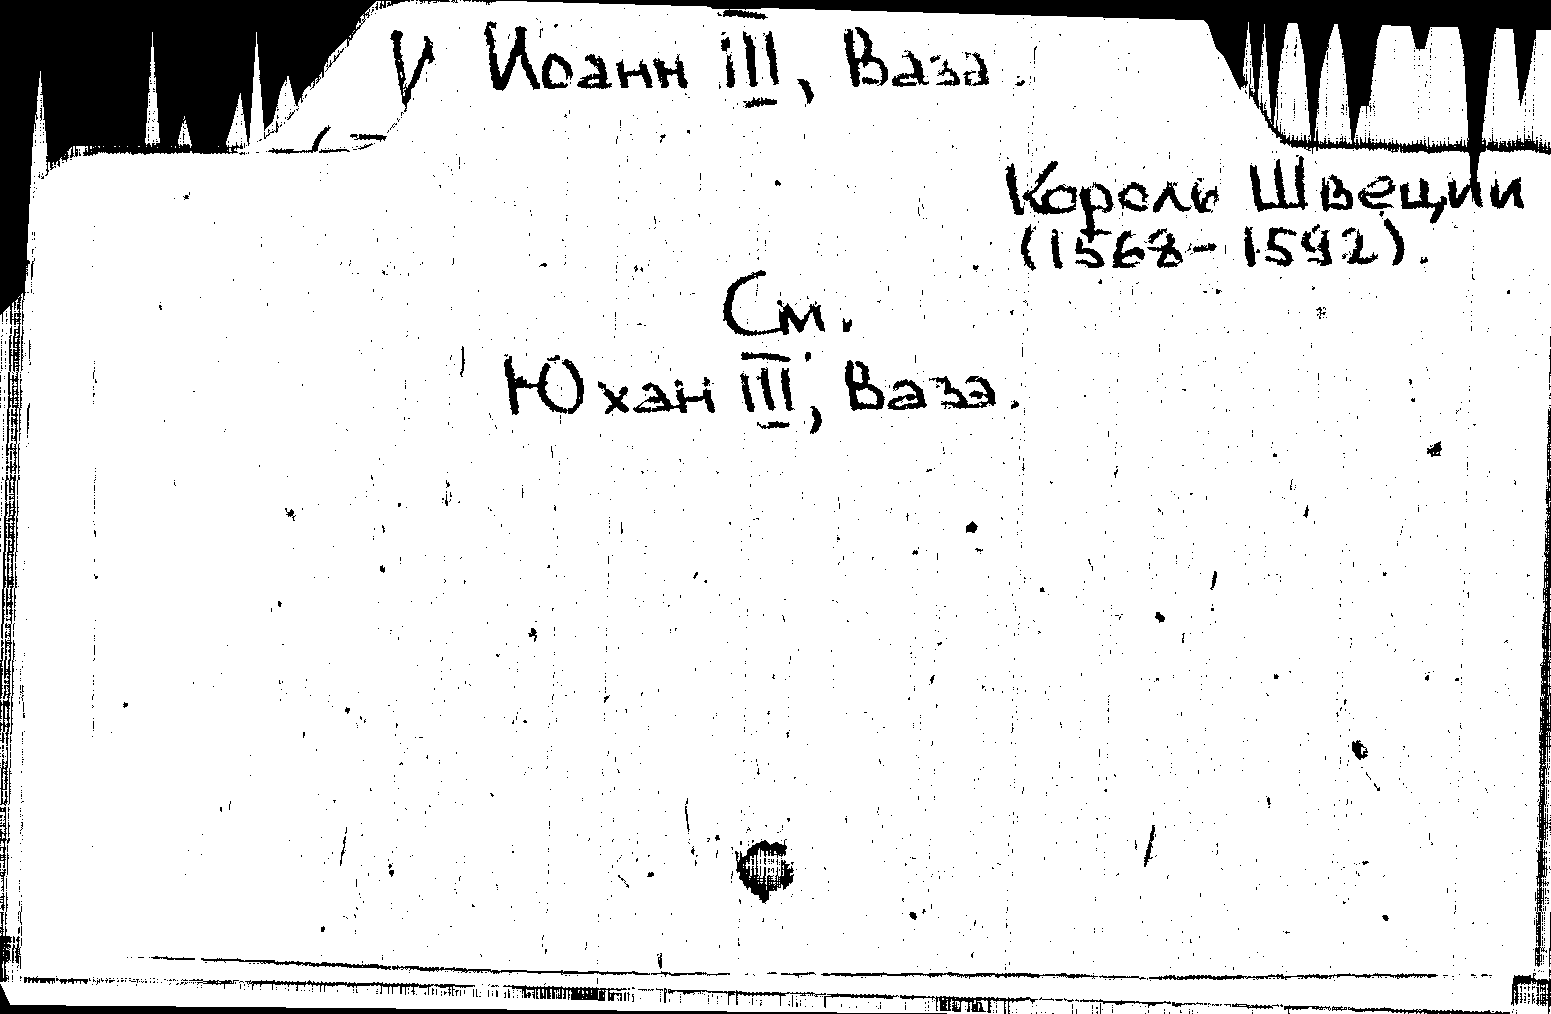 V Иоанн III, Ваза.
Король Швеции
(1568-1592).
См.
Юхан III, Ваза.